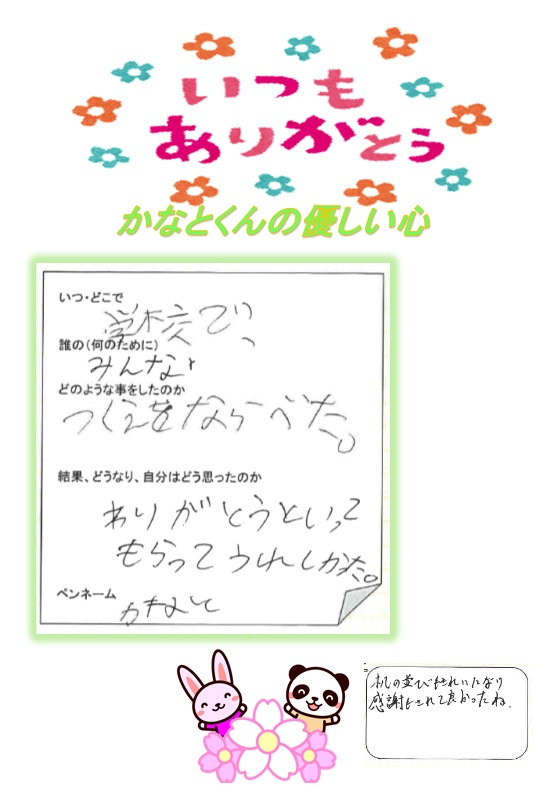 いつも
ありがとう
かなとくんの優しい心
いつ・どこで
学校で、
誰の(何のために)
みんな
どのような事をしたのか
つくえをならべた。
結果、どうなり、自分はどう思ったのか
ありがとうといって
もらってうれしかた。
ペンネーム
かなと
机の並びもきれいになり
感謝もされて良かったね。